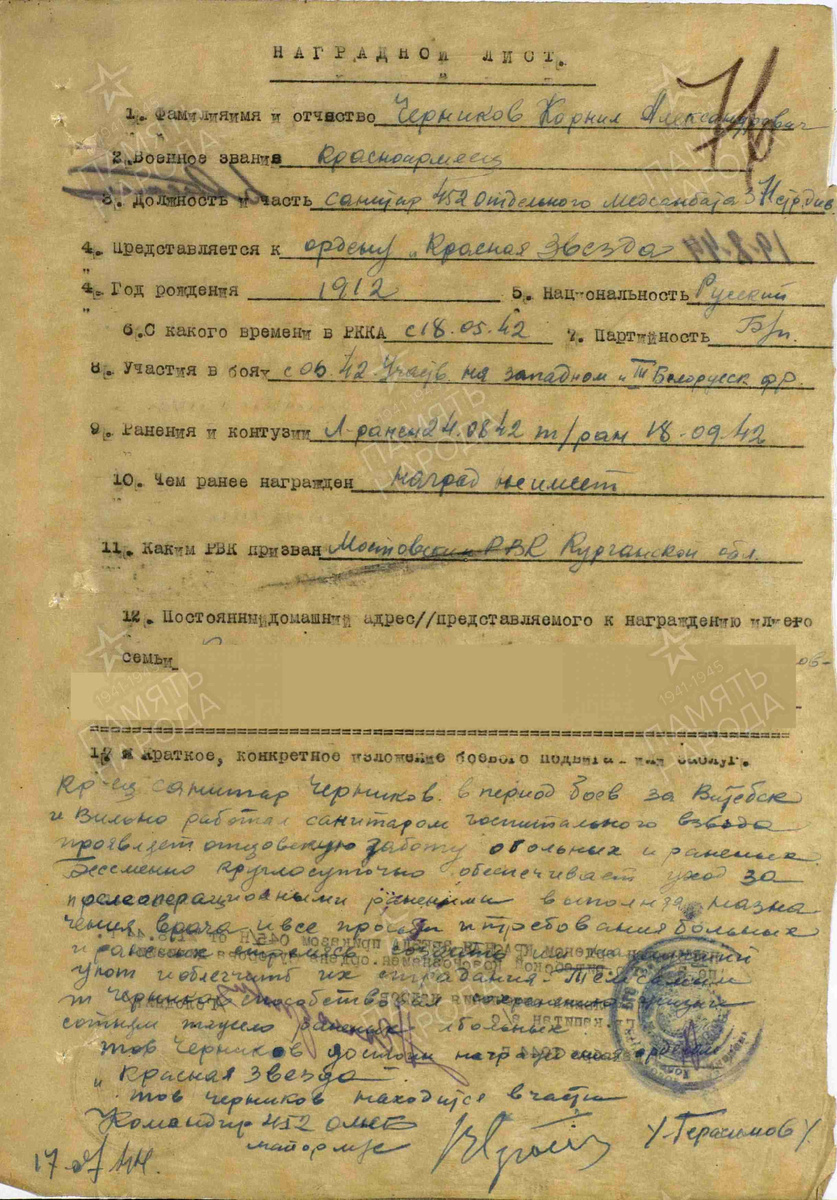 НАГРАДНОЙ ЛИСТ.
76
1. Фамилияимя и отчяство Черников Корнил Александрович
2. Военное звания Красноармеец
3. Должность и часть санитар 452 Отдельного Медсанбата 371 стр див
4. Представляется к ордену "Красная Звезда"
19.8.44
4. Год рождения 1912 5. Национальность Русский
6. С какого времени в РККА с 18.05.42 7. Партийность Б/п.
8. Участия в бояу с 06.42 Участв. на западном и III Белорусск фр.
9. Ранения и контузии Л. ранен 24.08 42 т/ран 18-09-42
10. Чем ранее награжден наград не имеет
11. Каким РВК призван Мостовским РВК Курганской обл.
12. Постоянный домашний адрес//представляемого к награждению или его
семьи
1? Краткое, конкретное изложение боевого подвига или заслуг.
Кр-ец санитар Черников в период боев за Витебск
и Вильно работая санитаром госпитального взвода
проявляет отцовскую заботу о больных и раненых.
Бессменно круглосуточно обеспечивает уход за
послеоперационными ранеными выполняя назна
чения врача и все просьбы и требования больных
и раненых
уют и облегчить их страдания. Тем самым
т Черников способствовал сохранению жизни
сотням тяжело раненых и больных.
тов Черников достоин награждения орденом
"Красная Звезда"
тов Черников находится в части
Командир 452 ОМСБ
майор м/с /Герасимов/
17.8/44.
ПАМЯТЬ НАРОДА
1941-1945